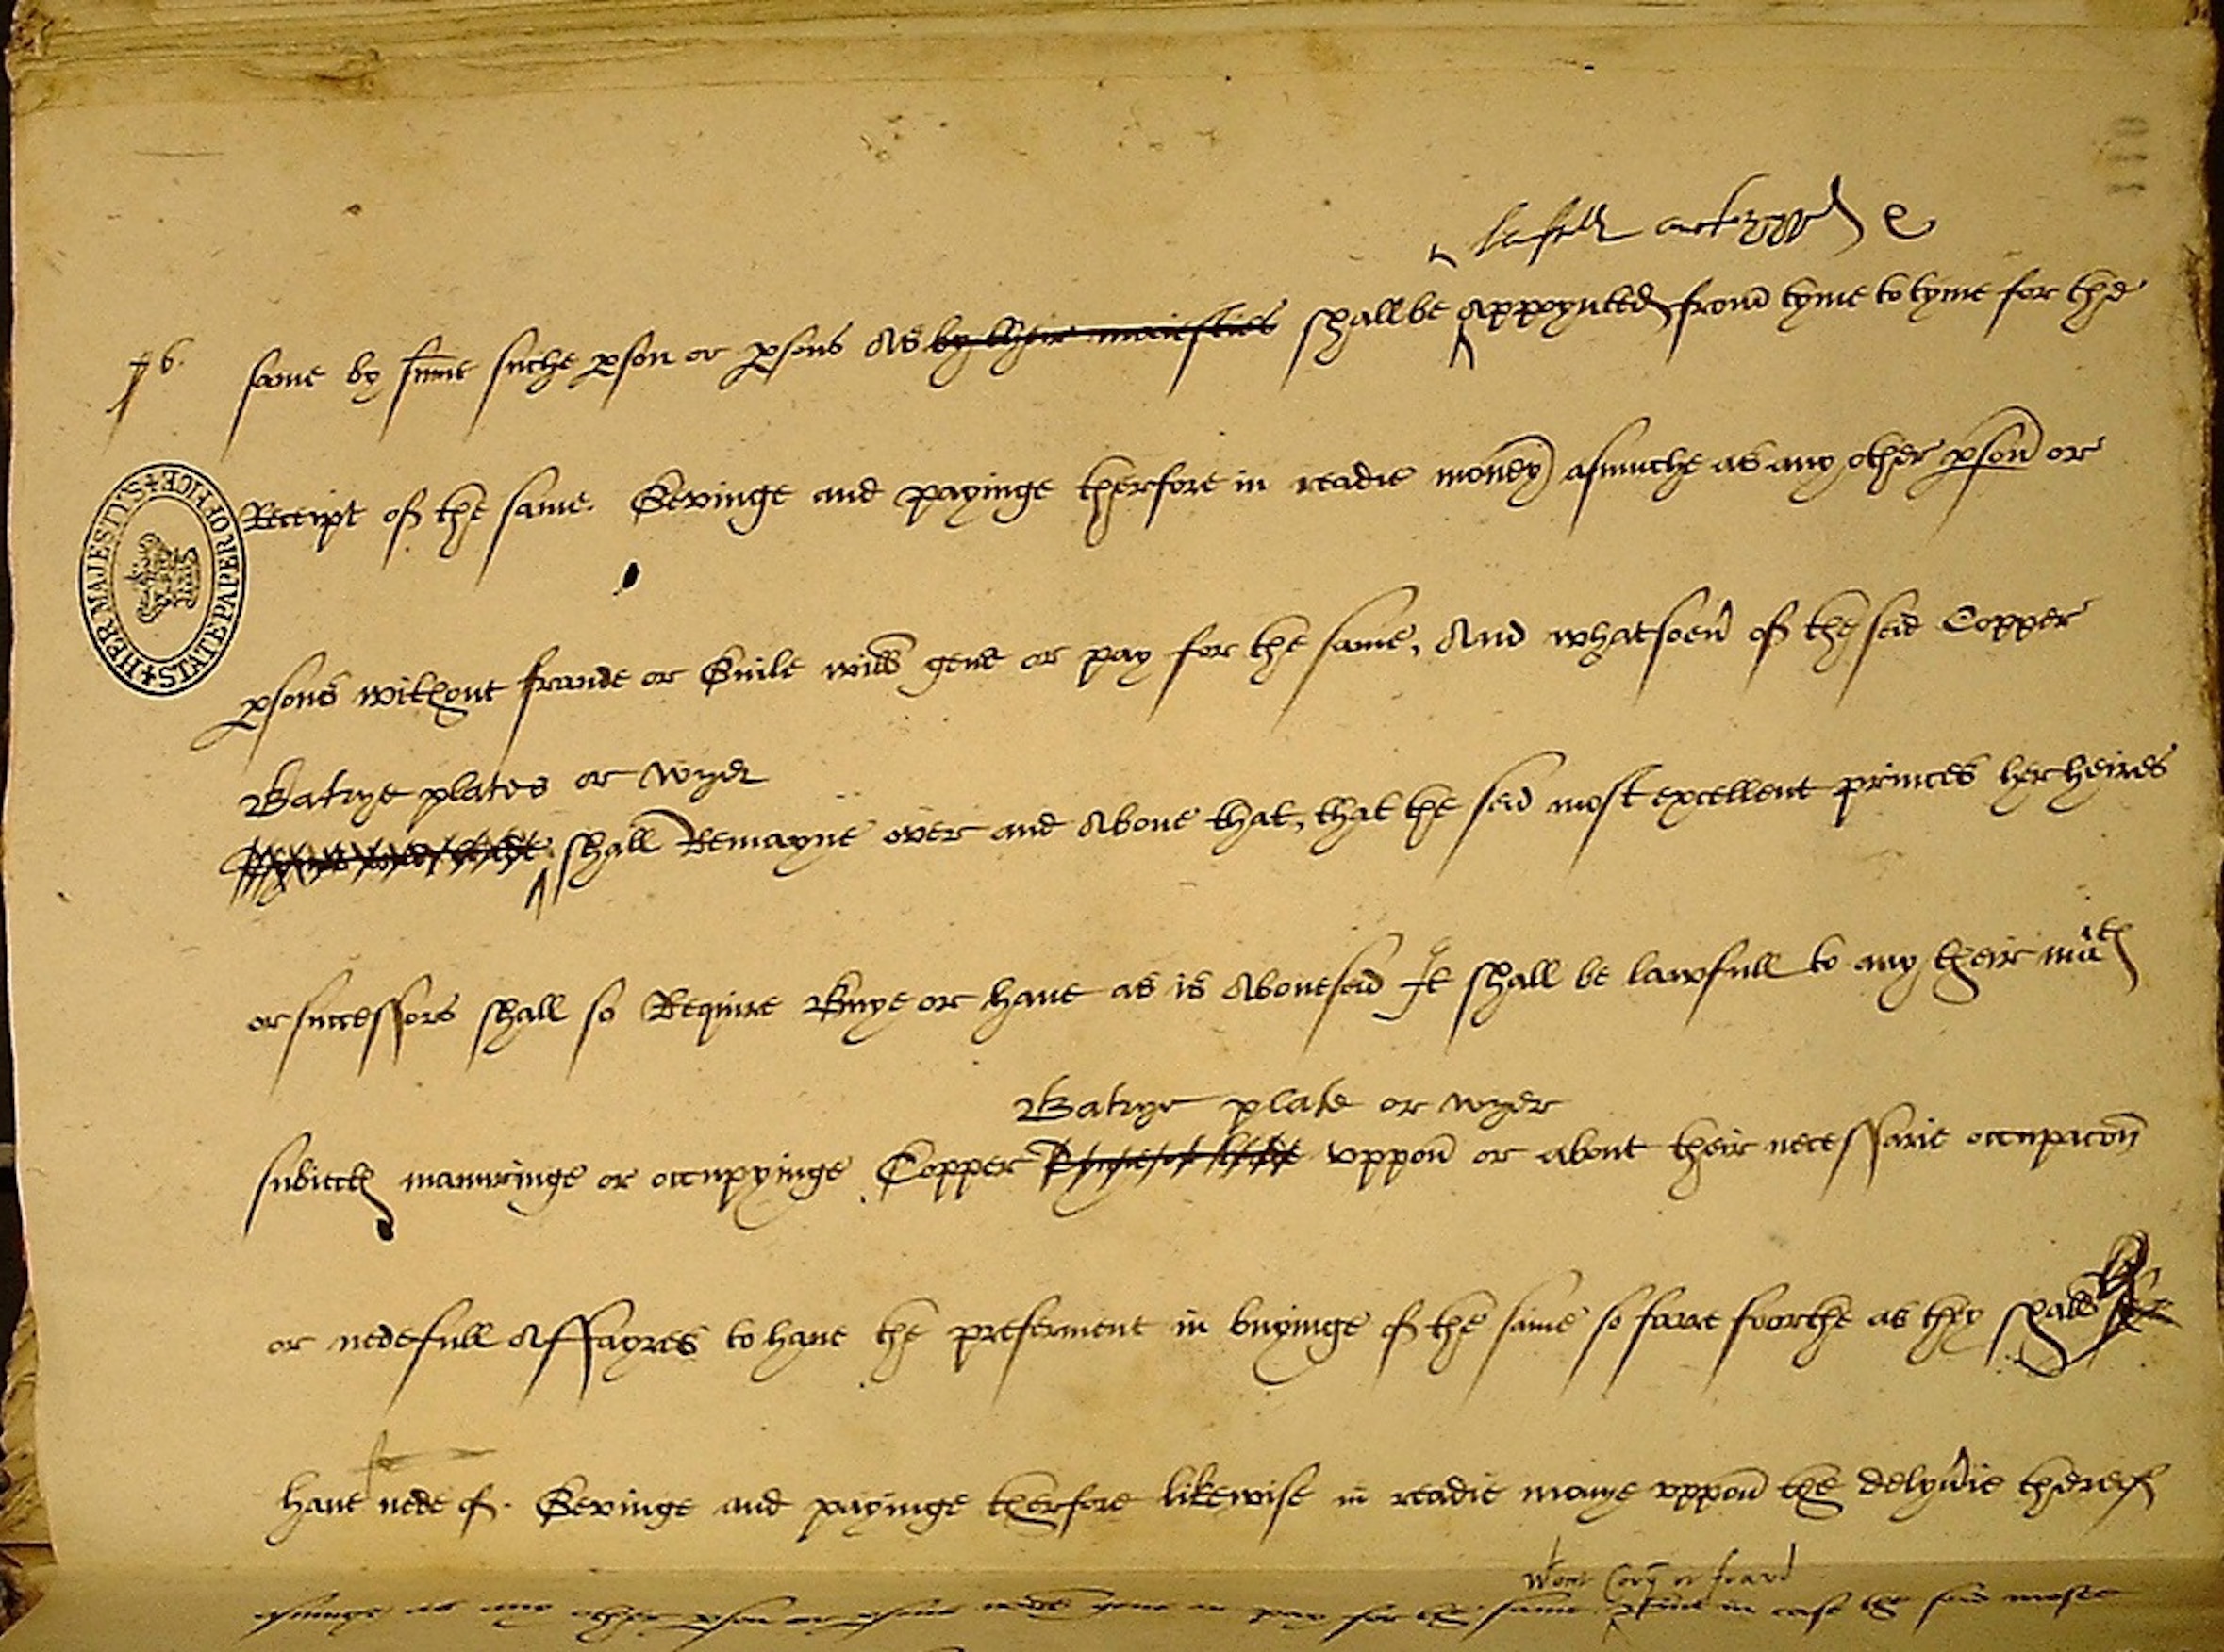 lafull auctoryte &
same by suche pson or psons As by their maiesties shalbe Appoynted from tyme to tyme for the
Receipt of the same. Gevinge and payinge therfore in readie money asmuche as any other pson or
psons without fraude or Guile will geve or pay for the same, And whatsoeu of the seid Copper
Batrye plates or wyer
shall Remayne over and Above that, that the seid most excellent princes her heires
or successors shall so Require Buye or have as is Aboveseid It shall be lawfull to any their
Batrye plate or wyer
subiectes manuringe or occupyinge Copper vppon or about their necessarie occupacon
or nedefull Affayres to have the preferment in buyinge of the same so farre foorthe as they shall
have nede of. Gevinge and payinge therfore likewise in readie monye vppon the delyuie thereof
asmuche as any other pson or psons geve or pay for the same in case the said moste
HER MAJESTY'S STATE PAPER OFFICE
110